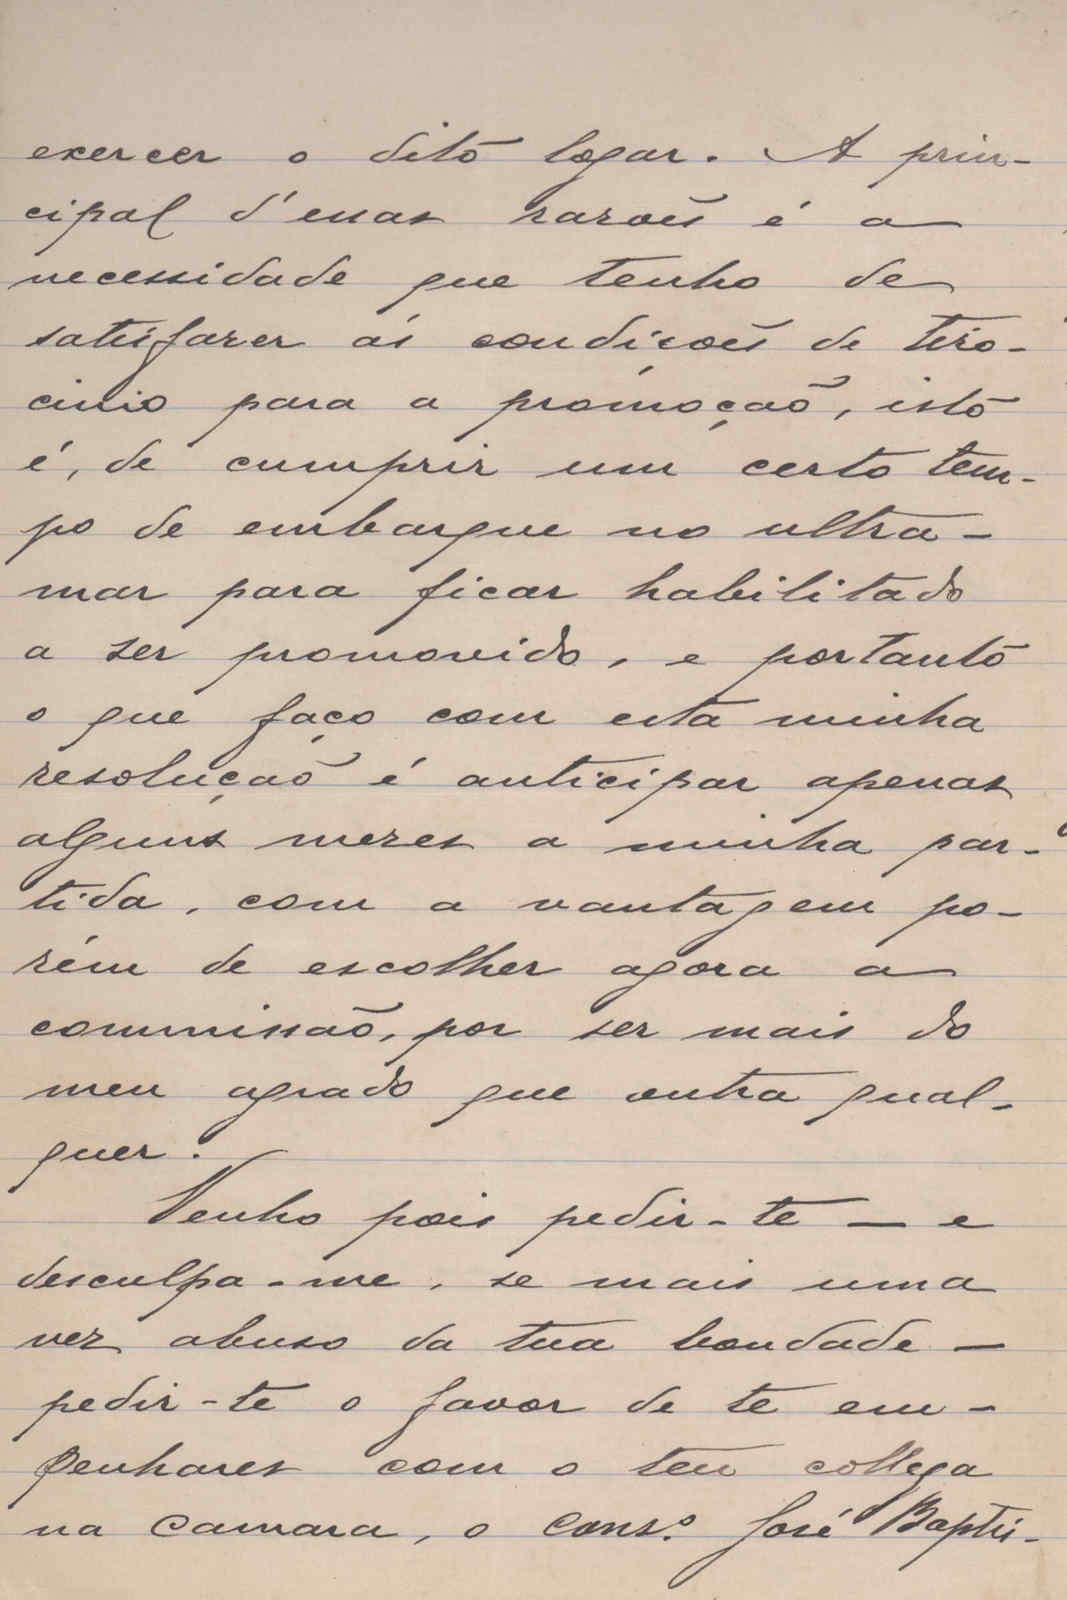 exercer o dito logar. A prin-
cipal d'essas razões é a
necessidade que tenho de
satisfazer ás condições de tiro-
cinio para a promoção, isto
é, de cumprir um certo tem-
po de embarque no ultra-
mar para ficar habilitado
a ser promovido, e portanto
o que faço com esta minha
resolução é anticipar apenas
alguns mezes a minha par-
tida, com a vantagem po-
rém de escolher agora a
commissão, por ser mais do
meu agrado que outra qual-
quer.
Venho pois pedir-te — e
desculpa-me, se mais uma
vez abuso da tua bondade —
pedir-te o favor de te em-
penhares com o teu collega
na Camara, o Cons.º José Baptis-